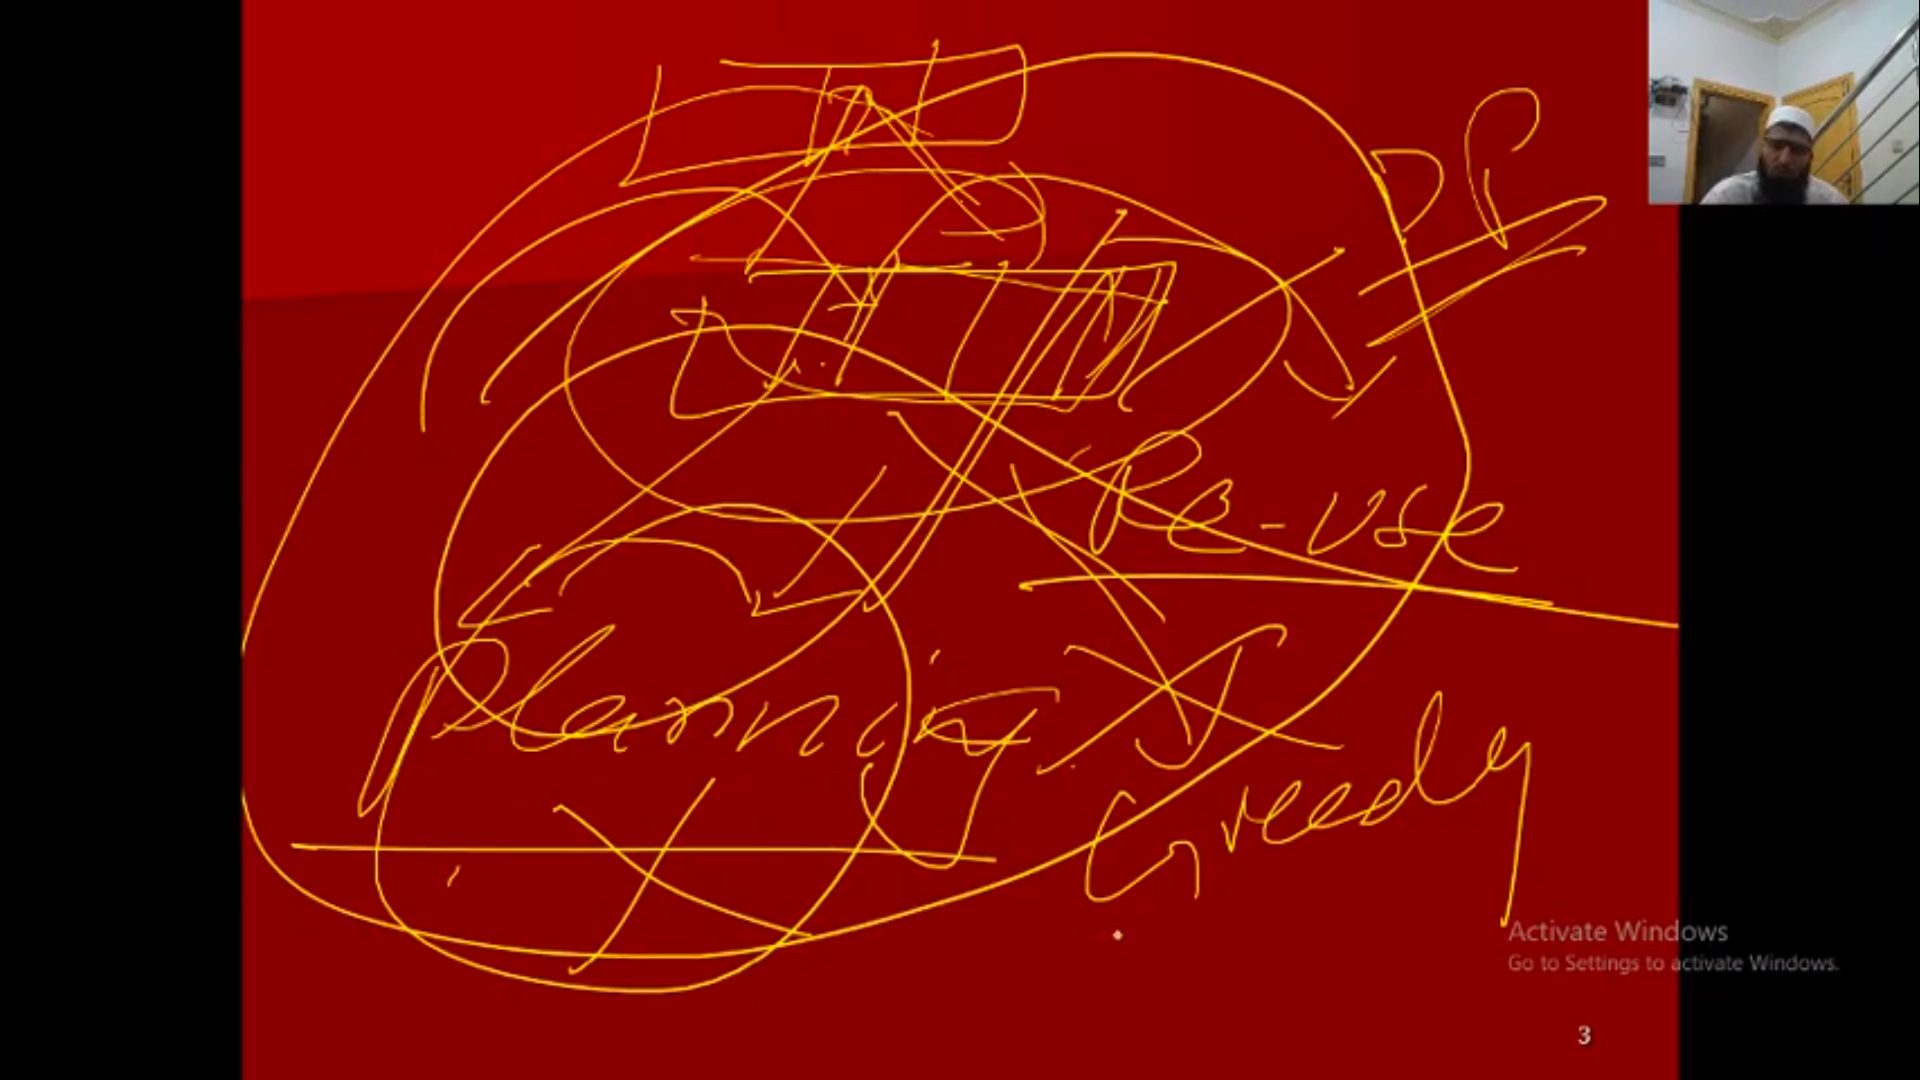 DP
Re-use
Planning
Greedy
Activate Windows
Go to Settings to activate Windows.
3